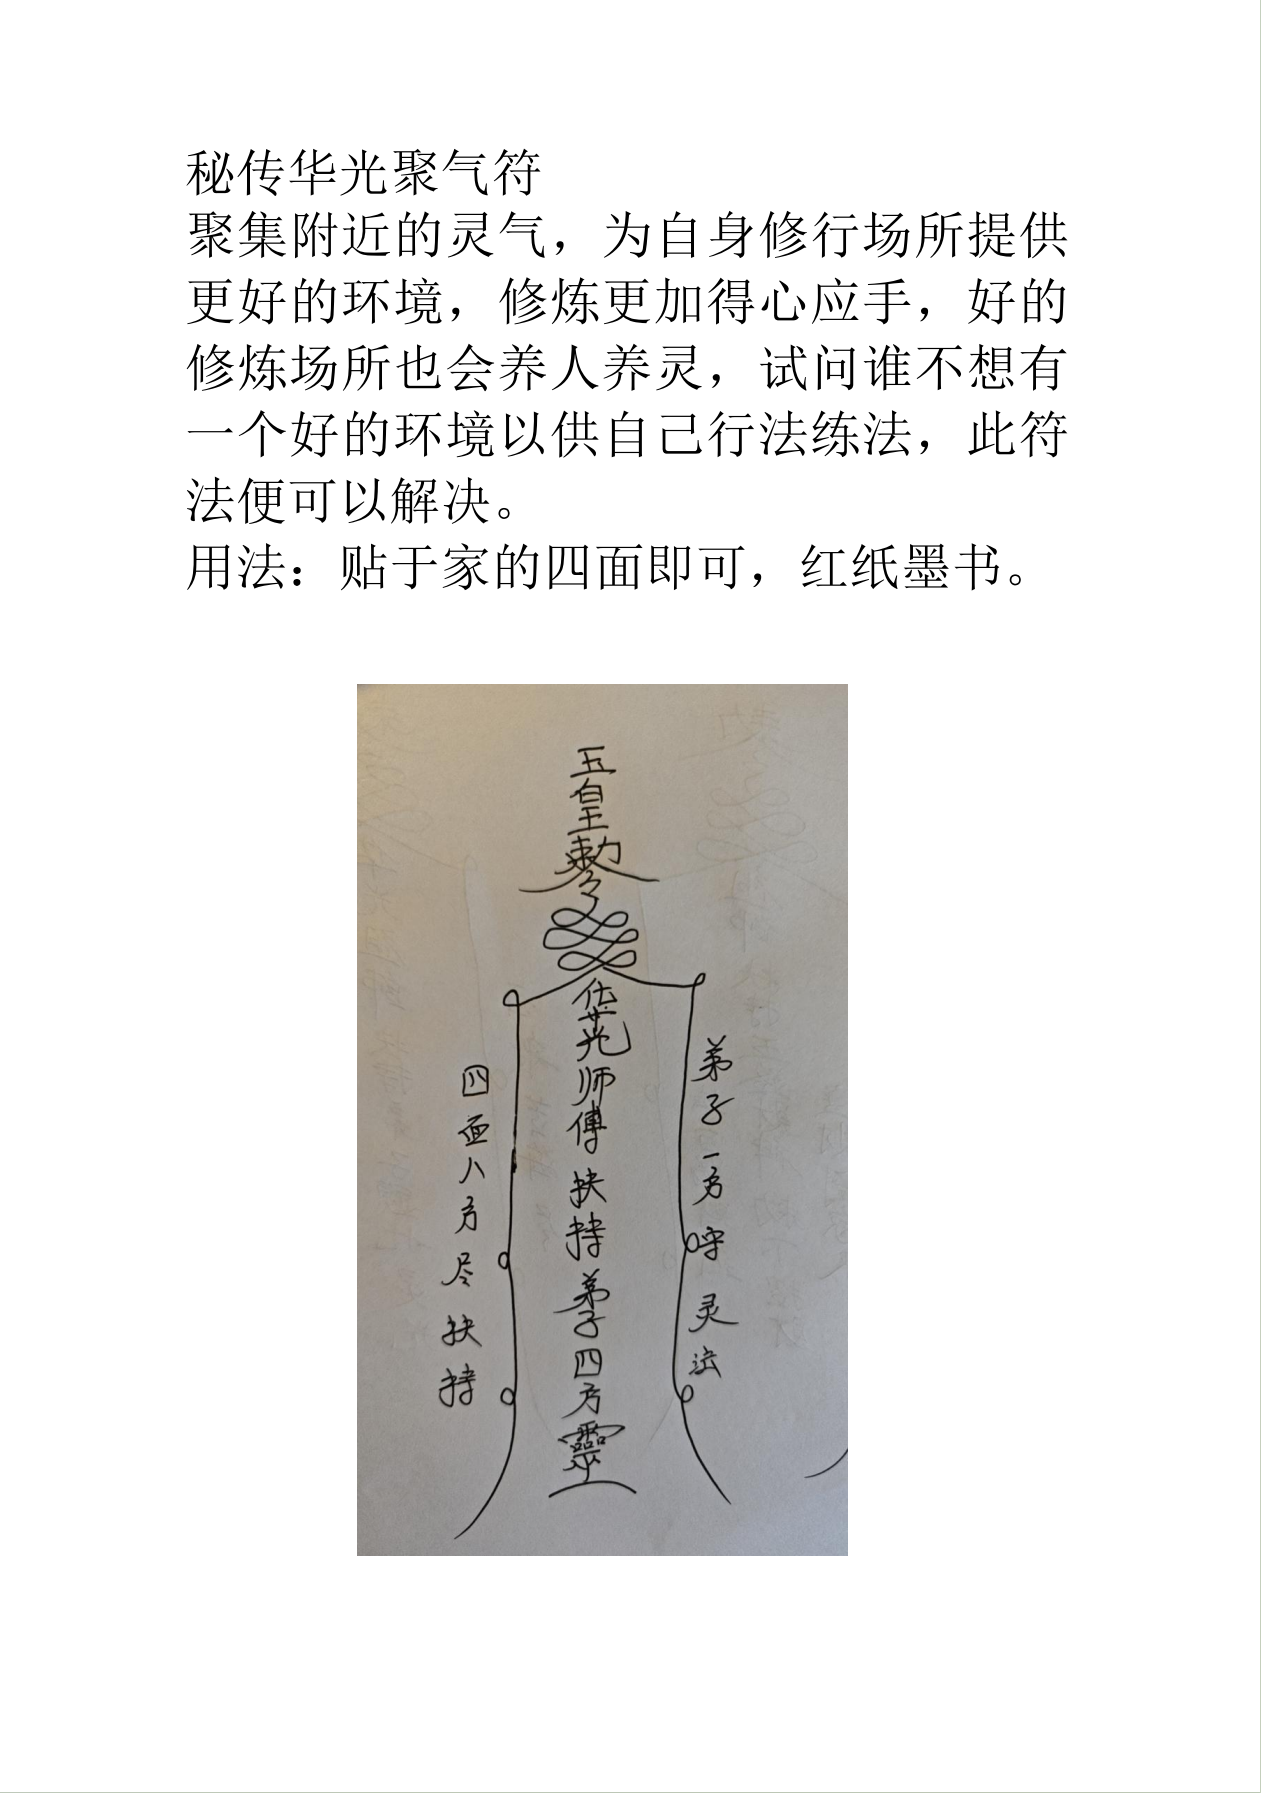 秘传华光聚气符
聚集附近的灵气，为自身修行场所提供
更好的环境，修炼更加得心应手，好的
修炼场所也会养人养灵，试问谁不想有
一个好的环境以供自己行法练法，此符
法便可以解决。
用法：贴于家的四面即可，红纸墨书。
玉皇勅令
华光师傅扶持弟子四方靈
弟子一方呼灵法
四面八方尽扶持